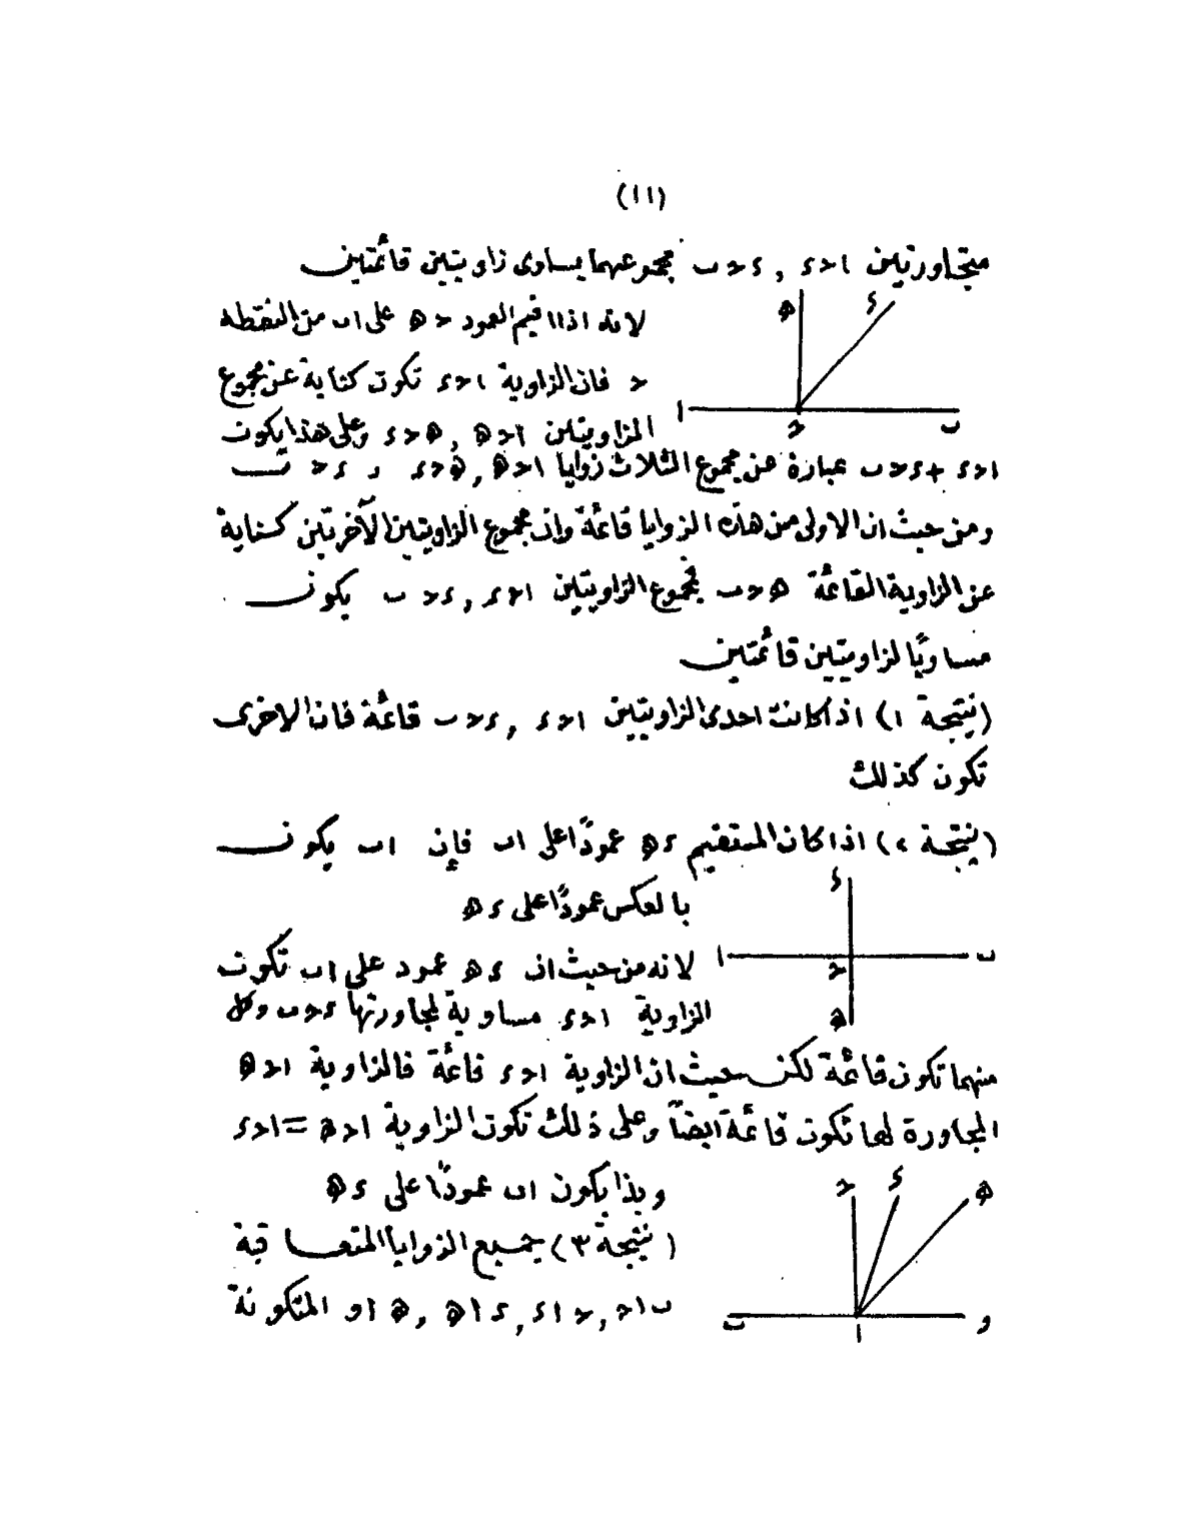 (١١)
متجاورتين احء , ءحب مجموعهما يساوى زاويتين قائمتين
ه ء
لانه اذا اقيم العمود حه على اب من النقطه
ح فان الزاوية احء تكون كناية عن مجموع
ا ح ب
الزاويتين احه , هحء وعلى هذا يكون
احء + ءحب عبارة عن مجموع الثلاث زوايا احه , هحء و ءحب
ومن حيث ان الاولى من هذه الزوايا قائمة وان مجموع الزاويتين الآخرتين كناية
عن الزاوية القائمة هحب فمجموع الزاويتين احء , ءحب يكون
مساويًا لزاويتين قائمتين
(نتيجة ١) اذا كانت احدى الزاويتين احء , ءحب قائمة فان الاخرى
تكون كذلك
(نتيجة ٢) اذا كان المستقيم ءه عمودًا على اب فإن اب يكون
ء
بالعكس عمودًا على ءه
لانه من حيث ان ءه عمود على اب تكون
ا ح ب
الزاوية احء مساوية لمجاورتها ءحب وكل
ه
منهما تكون قائمة لكن حيث ان الزاوية احء قائمة فالزاوية احه
المجاورة لها تكون قائمة ايضاً وعلى ذلك تكون الزاوية احه = احء
وبذا يكون اب عمودًا على ءه
ح ء ه
(نتيجة ٣) جميع الزوايا المتعاقبة
باح , حاء , ءاه , هاو المتكونة
ب ا و